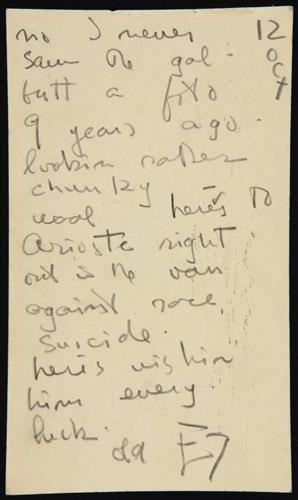 no I never 12
saw the gal - OCT
butt a foto
9 years ago
lookin rather
chunky
waal here's to
Ariosto right
out in the van
against race
suicide.
heres wishin
him every
luck.